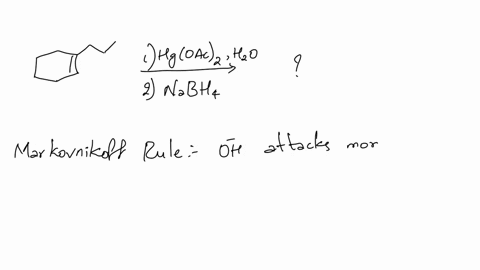 1) Hg(OAc)2, H2O
?
2) NaBH4
Markovnikoff Rule:- OH attacks mor